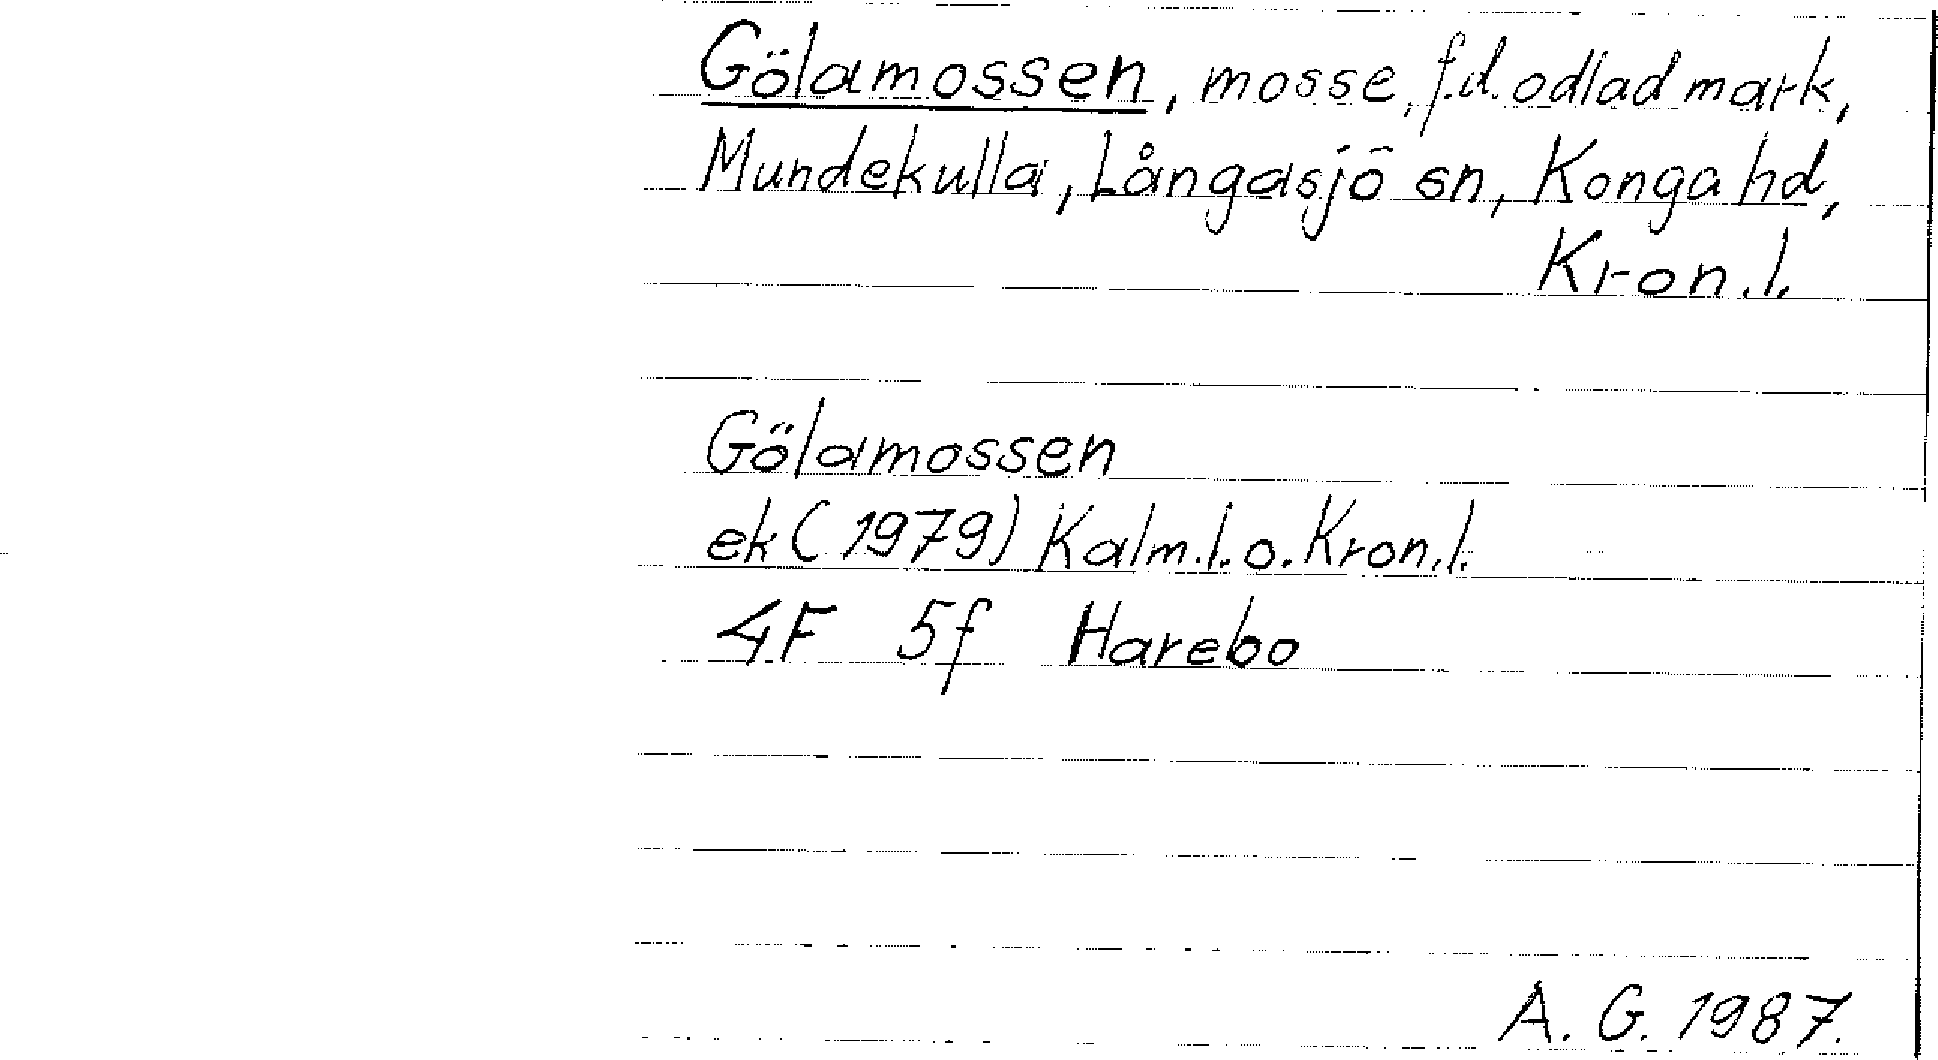 Gölamossen, mosse, f.d. odlad mark,
Mundekulla, Långasjö sn, Konga hd,
Kron.l.
Gölamossen
ek (1979) Kalm.l. o. Kron.l.
4F 5f Harebo
A. G. 1987.